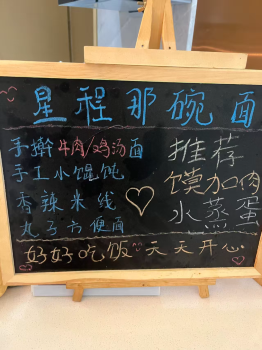 星程那碗面
手擀牛肉/鸡汤面
手工小馄饨
香辣米线
丸子方便面
推荐
馍加肉
水蒸蛋
好好吃饭 天天开心